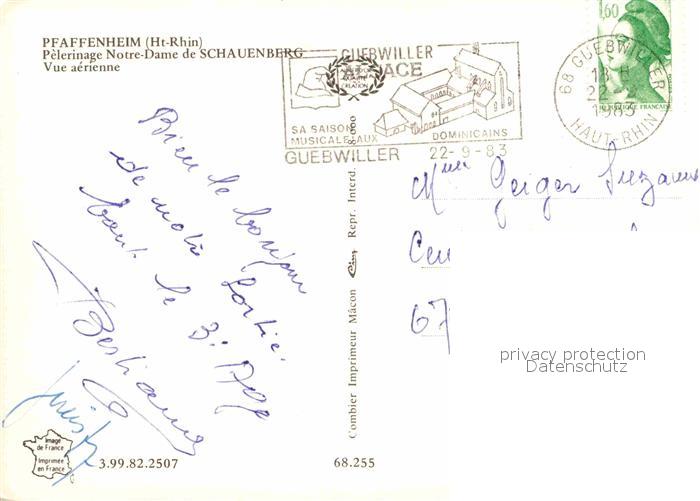 PFAFFENHEIM (Ht-Rhin)
Pèlerinage Notre-Dame de SCHAUENBERG
Vue aérienne
GUEBWILLER
ALSACE
SA SAISON
MUSICALE AUX
DOMINICAINS
GUEBWILLER 22-9-83
68 GUEBWILLER
18 H
22
1983
HAUT-RHIN
1,60
Bien le bonjour
de notre sortie.
tout le 3e
Mme Geiger Suzanne
67
Combier Imprimeur Mâcon Cim Repr. Interd.
privacy protection
Datenschutz
Image
de France
Imprimée
en France
3.99.82.2507
68.255